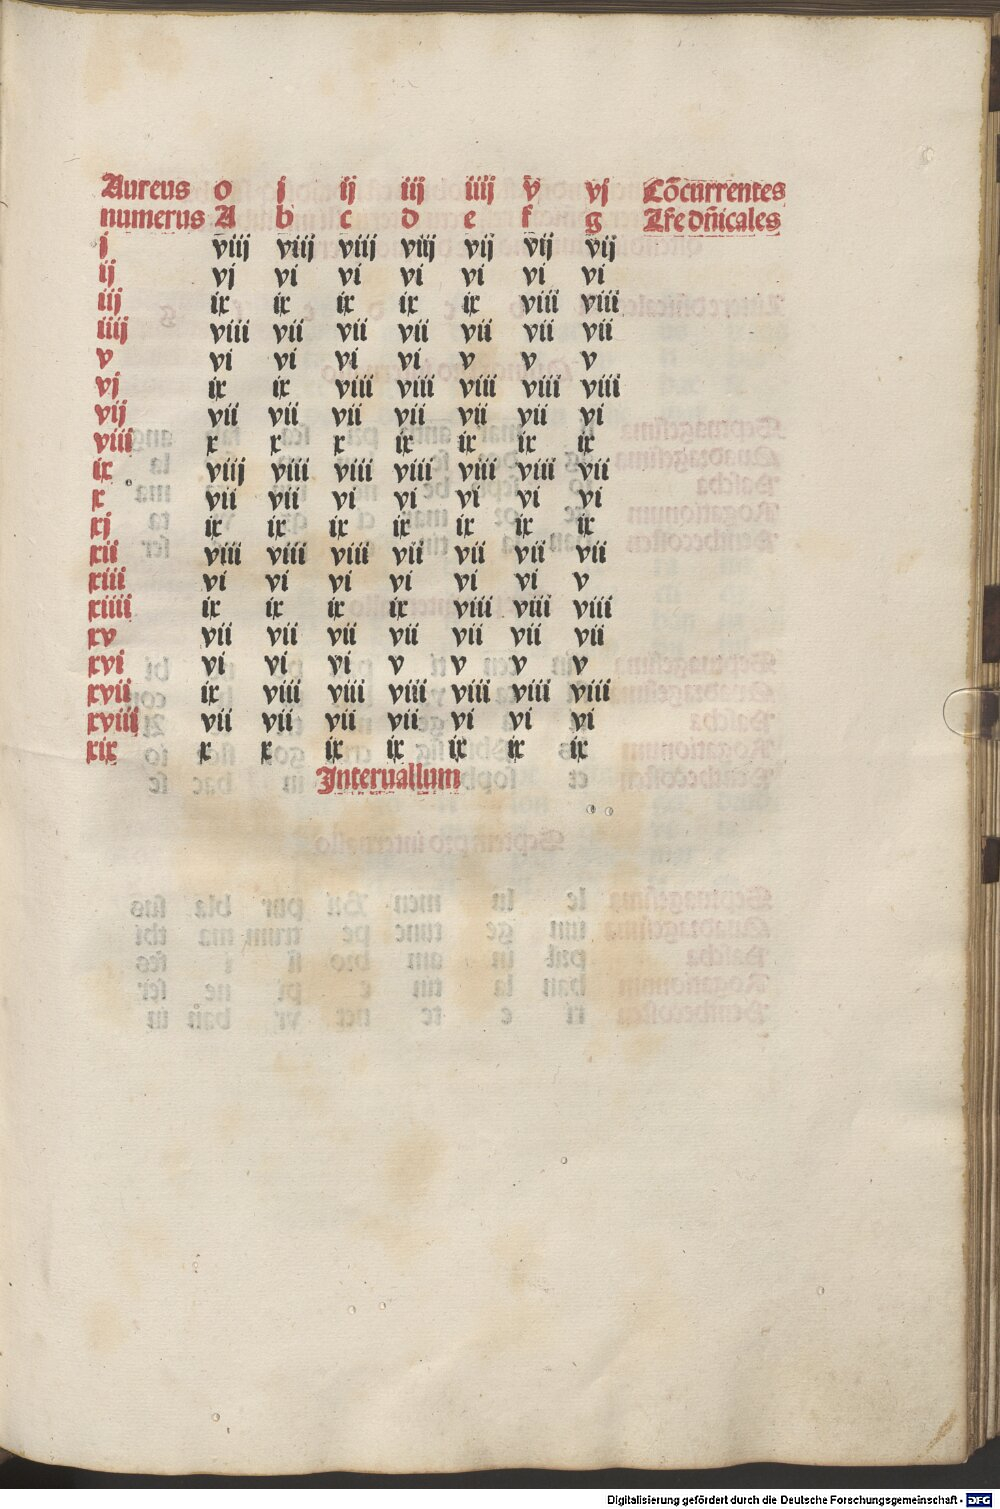 Aureus o j ij iij iiij v̄ vj Cōcurrentes
numerus A b c d e f g Lr̄e dn̄icales
j viij viij viij viij vij vij vij
ij vj vi vi vi vi vi vi
iij ix ix ix ix ix viii viii
iiij viii vii vii vii vii vii vii
v vi vi vi vi v v v
vj ix ix viii viii viii viii viii
vij vii vii vii vii vii vii vi
viii x x x ix ix ix ix
ix viij viii viii viii viii viii vii
x vii vii vi vi vi vi vi
xj ix ix ix ix ix ix ix
xii viii viii viii vii vii vii vii
xiii vi vi vi vi vi vi v
xiiii ix ix ix ix viii viii viii
xv vii vii vii vii vii vii vii
xvi vi vi vi v v v v
xvii ix viii viii viii viii viii viii
xviij vii vii vii vii vi vi vi
xix x x ix ix ix ix ix
Interuallum
Digitalisierung gefördert durch die Deutsche Forschungsgemeinschaft - DFG